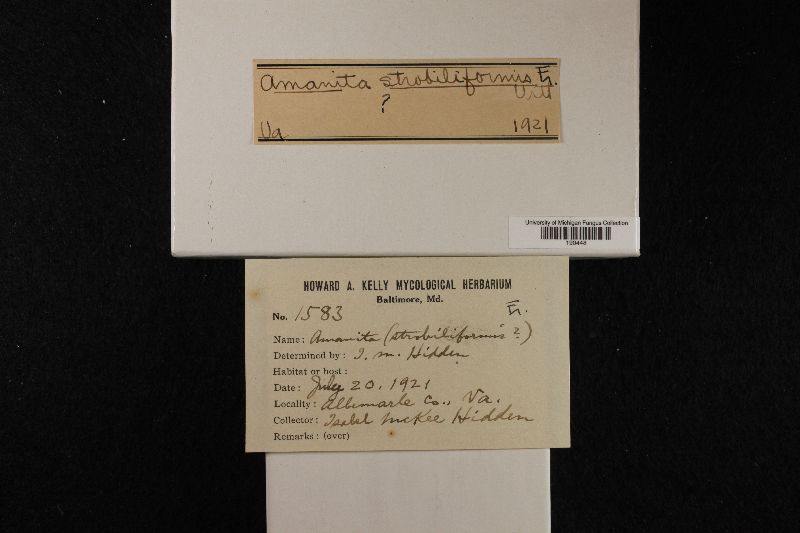 Amanita strobiliformis Fr.
Vitt
?
Va
1921
University of Michigan Fungus Collection
190448
HOWARD A. KELLY MYCOLOGICAL HERBARIUM
Baltimore, Md.
No. 1583
Fr.
Name: Amanita (strobiliformis ?)
Determined by: I. M. Hidden
Habitat or host:
Date: July 20, 1921
Locality: Albemarle Co., Va.
Collector: Isabel McKee Hidden
Remarks: (over)